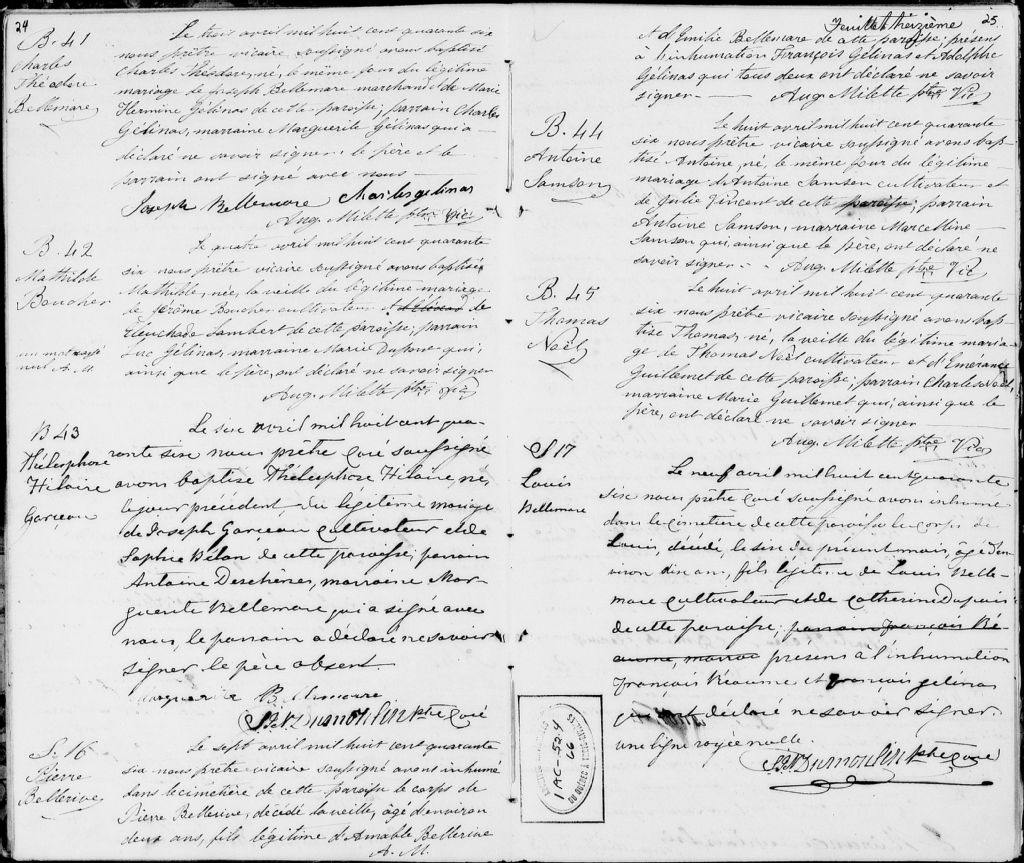 24
B. 41
Charles
Théodore
Bellemare
Le trois avril mil huit cent quarante six
nous prêtre vicaire soussigné avons baptisé
Charles Théodore, né, le même jour du légitime
mariage de Joseph Bellemare marchand & de Marie
Hermine Gélinas de cette paroisse; parrain Charles
Gélinas, marraine Marguerite Gélinas qui a
déclaré ne savoir signer. le père et le
parrain ont signé avec nous
Joseph Bellemare Charles gelinas
Aug. Milette ptre Vic
B. 42
Mathilde
Boucher
un mot rayé
nul A. M.
Le quatre avril mil huit cent quarante
six nous prêtre vicaire soussigné avons baptisé
Mathilde, née, la veille du légitime mariage
de Jérôme Boucher cultivateur & de
Lambert de cette paroisse; parrain
Luc Gélinas, marraine Marie Dupont qui,
ainsi que le père, ont déclaré ne savoir signer
Aug. Milette ptre Vic
B 43
Thélesphore
Hilaire
Garceau
Le six avril mil huit cent qua-
rante six nous prêtre Curé soussigné
avons baptisé Thélesphore Hilaire, né,
le jour précédent, du légitime mariage
de Joseph Garceau Cultivateur et de
Sophie Bélan de cette paroisse, parrain
Antoine Deschênes, marraine Mar-
guerite Bellemare qui a signé avec
nous, le parrain a déclaré ne savoir
signer le père absent.
Marguerite Bellemare
Dumoulin Ptre Curé
S. 16
Pierre
Bellerive
Le sept avril mil huit cent quarante
six nous prêtre vicaire soussigné avons inhumé
dans le cimetière de cette paroisse le corps de
Pierre Bellerive, décédé la veille, âgé d'environ
deux ans, fils légitime d'Amable Bellerive
A. M.
Feuillet treizième 25
et d'Emilie Bellemare de cette paroisse; présens
à l'inhumation François Gélinas et Adolphe
Gélinas qui tous deux ont déclaré ne savoir
signer Aug. Milette ptre Vic
B. 44
Antoine
Samson
Le huit avril mil huit cent quarante
six nous prêtre vicaire soussigné avons bap-
tisé Antoine, né, le même jour du légitime
mariage d'Antoine Samson cultivateur et
de Julie Vincent de cette paroisse; parrain
Antoine Samson, marraine Marcelline
Samson qui, ainsi que le père, ont déclaré ne
savoir signer Aug. Milette ptre Vic
B. 45
Thomas
Noël
Le huit avril mil huit cent quarante
six nous prêtre vicaire soussigné avons bap-
tisé Thomas, né, la veille du légitime maria-
ge de Thomas Noël cultivateur et d'Emérance
Guillemet de cette paroisse; parrain Charles Noël,
marraine Marie Guillemet qui, ainsi que le
père, ont déclaré ne savoir signer
Aug. Milette ptre Vic
S 17
Louis
Bellemare
Le neuf avril mil huit cent quarante
six nous prêtre Curé soussigné avons inhumé
dans le cimetière de cette paroisse le corps de
Louis, décédé, le six du présent mois, âgé d'en-
viron dix ans, fils légitime de Louis Belle-
mare Cultivateur et de Catherine Dupuis
de cette paroisse; parrain François Ré-
aume, marrai présens à l'inhumation
François Réaume et François gelinas
qui ont déclaré ne savoir signer.
une ligne rayée nulle.
Dumoulin Ptre Curé